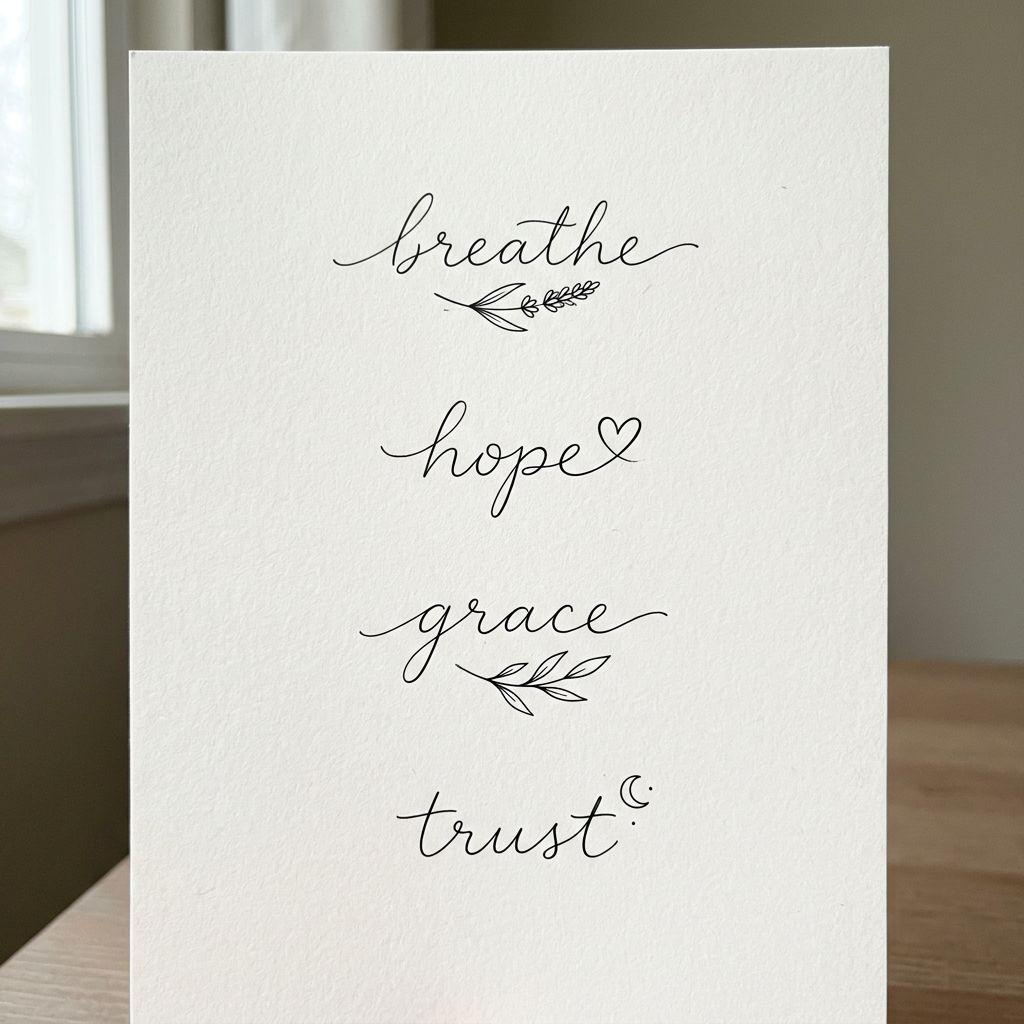 breathe
hope
grace
trust